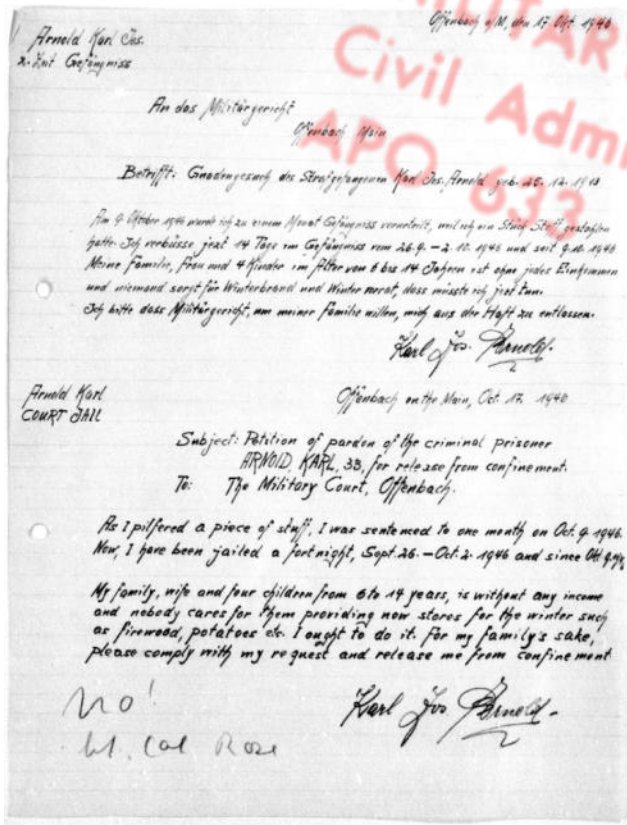 MILITAR
Civil Admi
APO 633
Offenbach a/M, den 17 Okt. 1946
Arnold Karl Jos.
z. Zeit Gefängniss
An das Militärgericht
Offenbach Main
Betrifft: Gnadengesuch des Strafgefangenen Karl Jos. Arnold geb. 15. 12. 1913
Am 9. Oktober 1946 wurde ich zu einem Monat Gefängniss verurteilt, weil ich ein Stück Stoff gestohlen
hatte. Ich verbüsse jezt 14 Tage im Gefängniss vom 26.9. – 2.10. 1946 und seit 9.10. 1946
Meine Familie, Frau und 4 Kinder im Alter von 6 bis 14 Jahren ist ohne jedes Einkommen
und niemand sorgt für Winterbrand und Winter , dass müsste ich jezt tun.
Ich bitte dass Militärgericht, um meiner Familie willen, mich aus der Haft zu entlassen.
Karl Jos. Arnold.
Arnold Karl
COURT JAIL
Offenbach on the Main, Oct. 17. 1946
Subject: Petition of pardon of the criminal prisoner
ARNOLD, KARL, 33, for release from confinement.
To: The Military Court, Offenbach.
As I pilfered a piece of stuff, I was sentenced to one month on Oct. 9. 1946.
Now, I have been jailed a fortnight, Sept. 26. – Oct. 2. 1946 and since Okt. 9.
My family, wife and four children from 6 to 14 years, is without any income
and nobody cares for them providing now stores for the winter such
as firewood, potatoes etc. I ought to do it. For my family's sake,
please comply with my request and release me from confinement
Karl Jos. Arnold.
No!
Lt. Col Rose